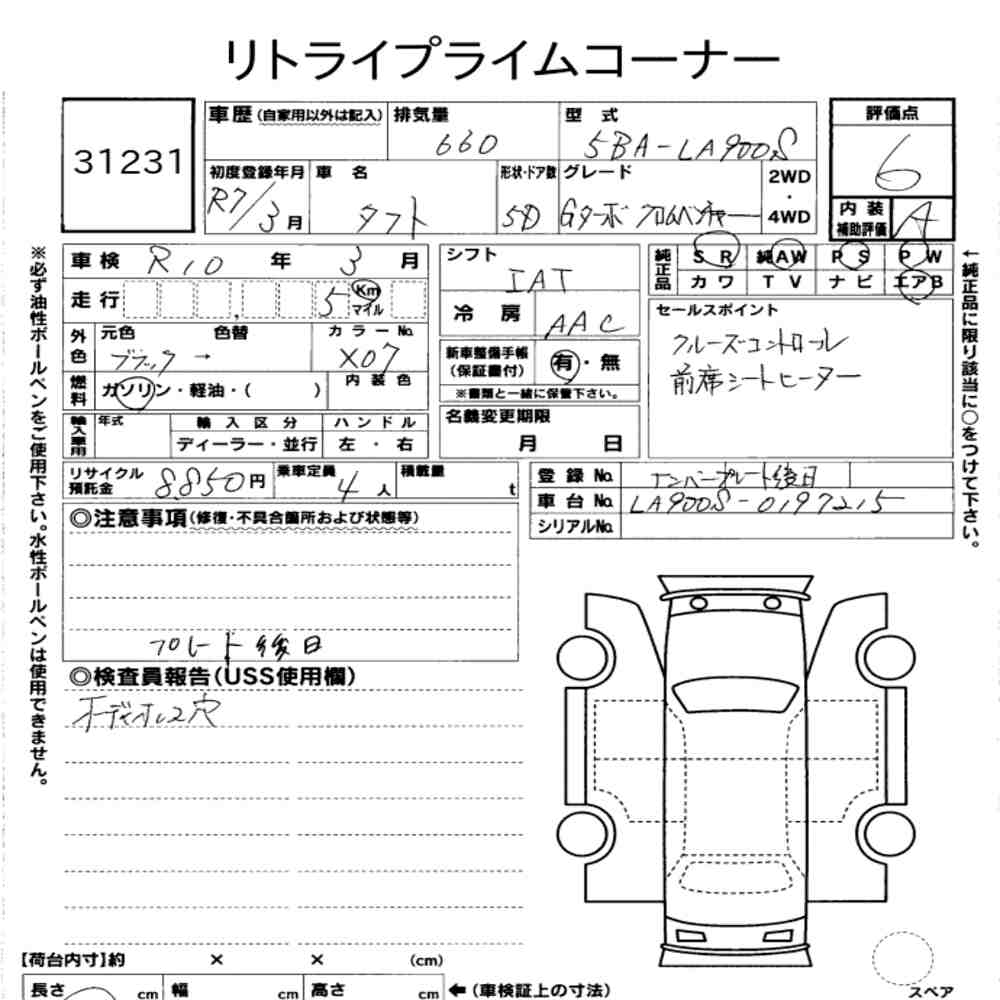 リトライプライムコーナー
31231
車歴 (自家用以外は記入) 排気量 型式 評価点
660 5BA-LA900S 6
初度登録年月 車名 形状・ドア数 グレード 2WD・4WD
R7/3月 タフト 5D Gターボ クロムベンチャー
内装補助評価 A
※必ず油性ボールペンをご使用下さい。水性ボールペンは使用できません。
車検 R10年 3月
走行 5 Km マイル
外色 元色 色替 カラーNo.
ブラック → X07
燃料 ガソリン・軽油・( ) 内装色
輸入車用 年式 輸入区分 ハンドル
ディーラー・並行 左・右
シフト IAT
冷房 AAC
新車整備手帳(保証書付) 有・無
※書類と一緒に保管下さい。
名義変更期限
月 日
純正品 SR 純AW PS PW
カワ TV ナビ エアB
セールスポイント
クルーズコントロール
前席シートヒーター
←純正品に限り該当に○をつけて下さい。
リサイクル預託金 8850円 乗車定員 4人 積載量 t
登録No. ナンバープレート後日
車台No. LA900S-0197215
シリアルNo.
◎注意事項(修復・不具合箇所および状態等)
プレート後日
◎検査員報告(USS使用欄)
オーディオレス穴
【荷台内寸】約 × × (cm)
長さ cm 幅 cm 高さ cm ←(車検証上の寸法)
スペア